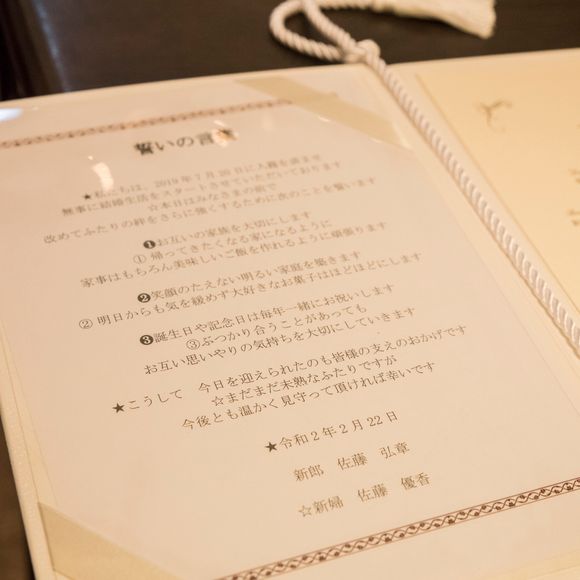 誓いの言葉
★私たちは、2019年7月20日に入籍を済ませ
無事に結婚生活をスタートさせていただいております
☆本日はみなさまの前で
改めてふたりの絆をさらに強くするために次のことを誓います
❶お互いの家族を大切にします
① 帰ってきたくなる家になるように
家事はもちろん美味しいご飯を作れるように頑張ります
❷笑顔のたえない明るい家庭を築きます
② 明日からも気を緩めず大好きなお菓子はほどほどにします
❸誕生日や記念日は毎年一緒にお祝いします
③ぶつかり合うことがあっても
お互い思いやりの気持ちを大切にしていきます
★こうして 今日を迎えられたのも皆様の支えのおかげです
☆まだまだ未熟なふたりですが
今後とも温かく見守って頂ければ幸いです
★令和2年2月22日
新郎 佐藤 弘章
☆新婦 佐藤 優香